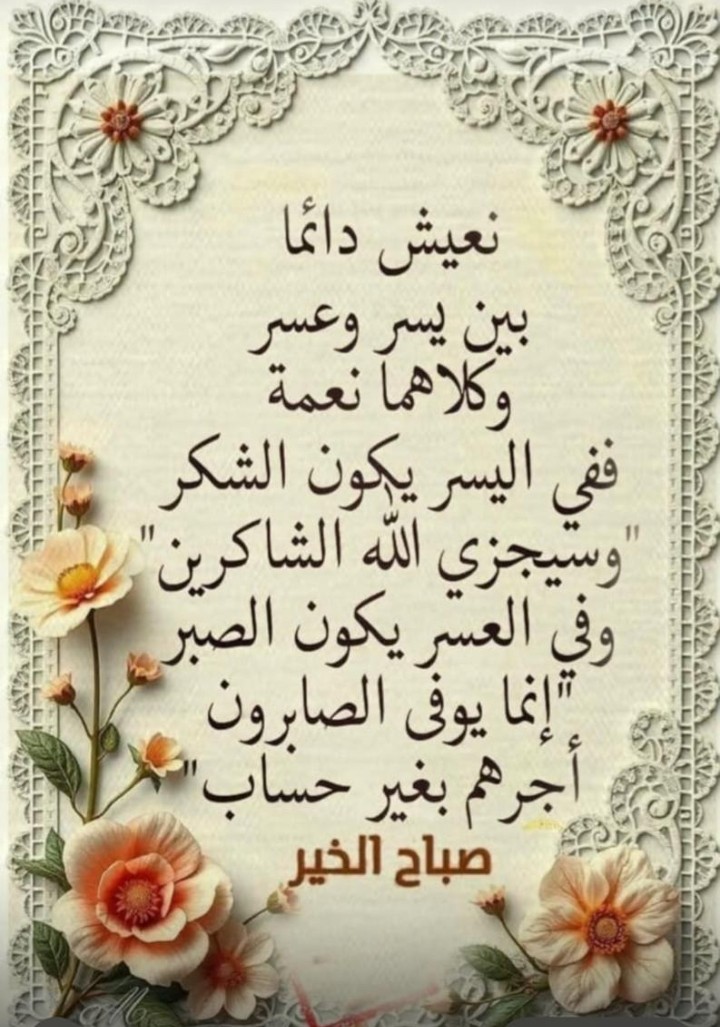 نعيش دائما
بين يسر وعسر
وكلاهما نعمة
ففي اليسر يكون الشكر
"وسيجزي الله الشاكرين"
وفي العسر يكون الصبر
"إنما يوفى الصابرون
أجرهم بغير حساب"
صباح الخير